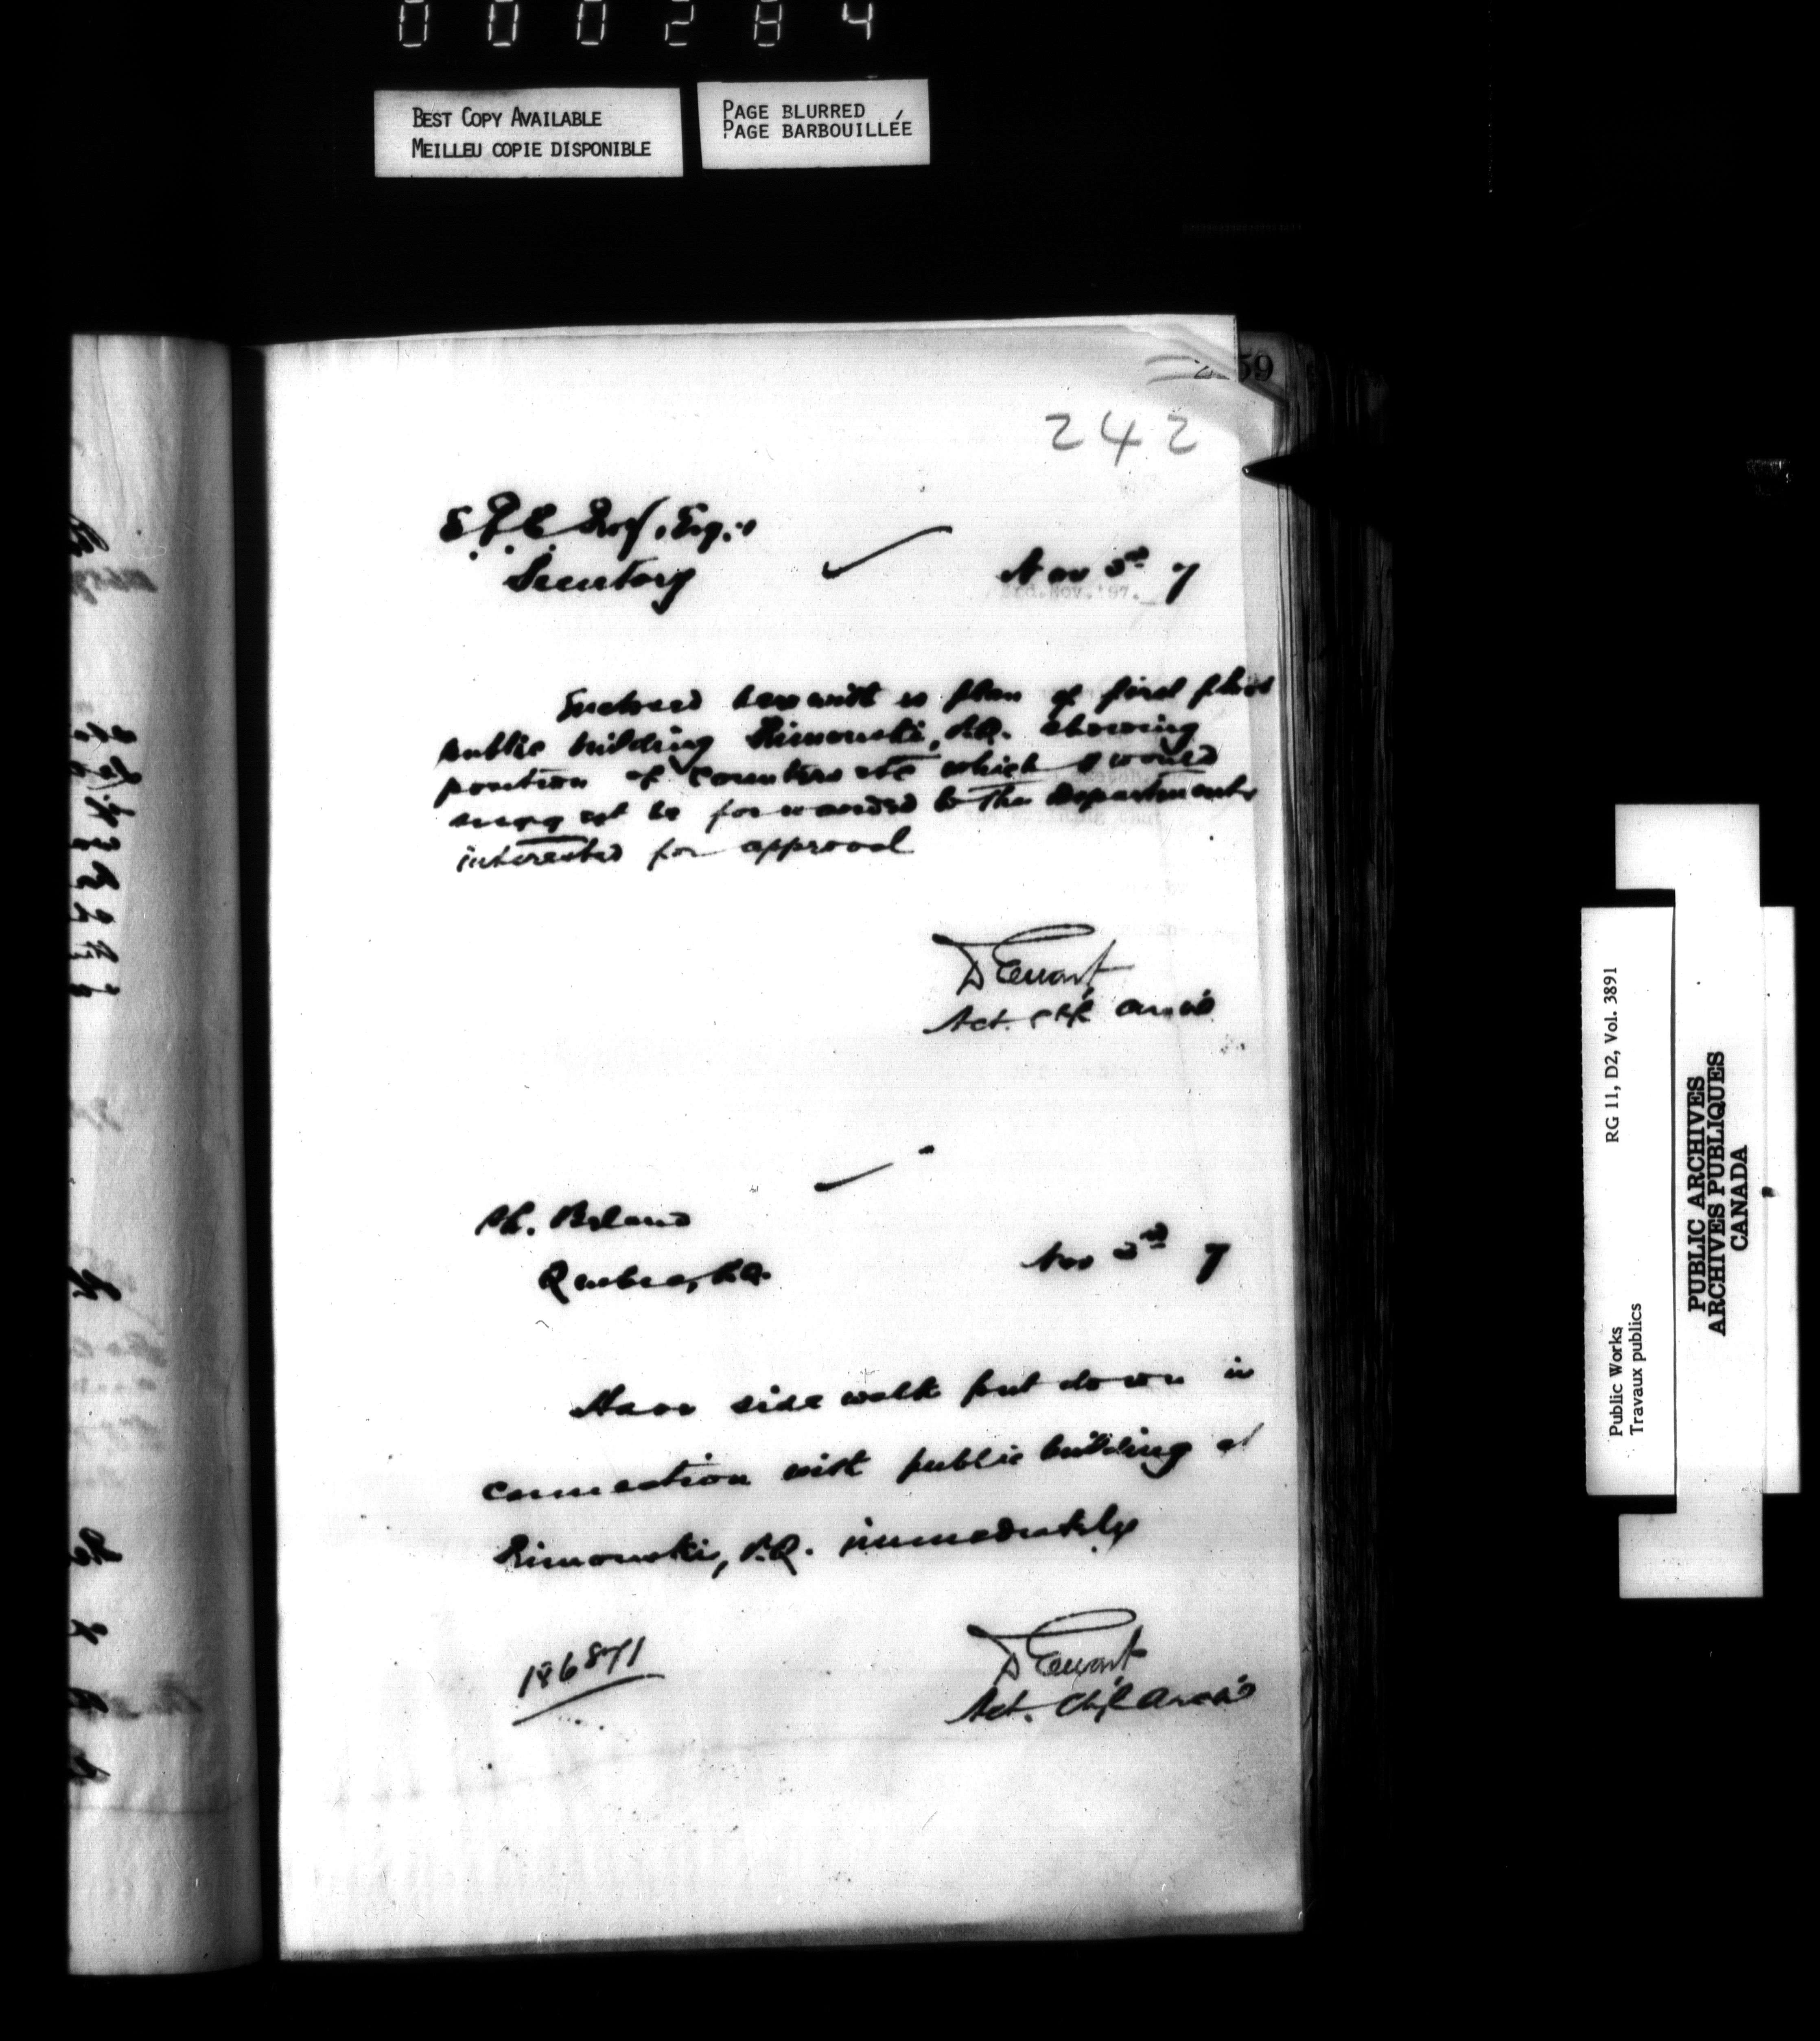 000284
BEST COPY AVAILABLE
MEILLEU COPIE DISPONIBLE
PAGE BLURRED
PAGE BARBOUILLÉE
59
242
E. F. E. Roy, Esq.
Secretary
Nov 3rd 7
Nov. '97.
Enclosed herewith is plan of first floor
public building Rimouski, P.Q. showing
position of counters etc which I would
suggest be forwarded to the Departments
interested for approval
D Ewart
Act. Chf. Archt
Ph. Beland
Quebec, P.Q.
Nov 3rd 7
Have side walk put down in
connection with public building at
Rimouski, P.Q. immediately
186871
D Ewart
Act. Chf. Archt
Public Works
Travaux publics
RG 11, D2, Vol. 3891
PUBLIC ARCHIVES
ARCHIVES PUBLIQUES
CANADA